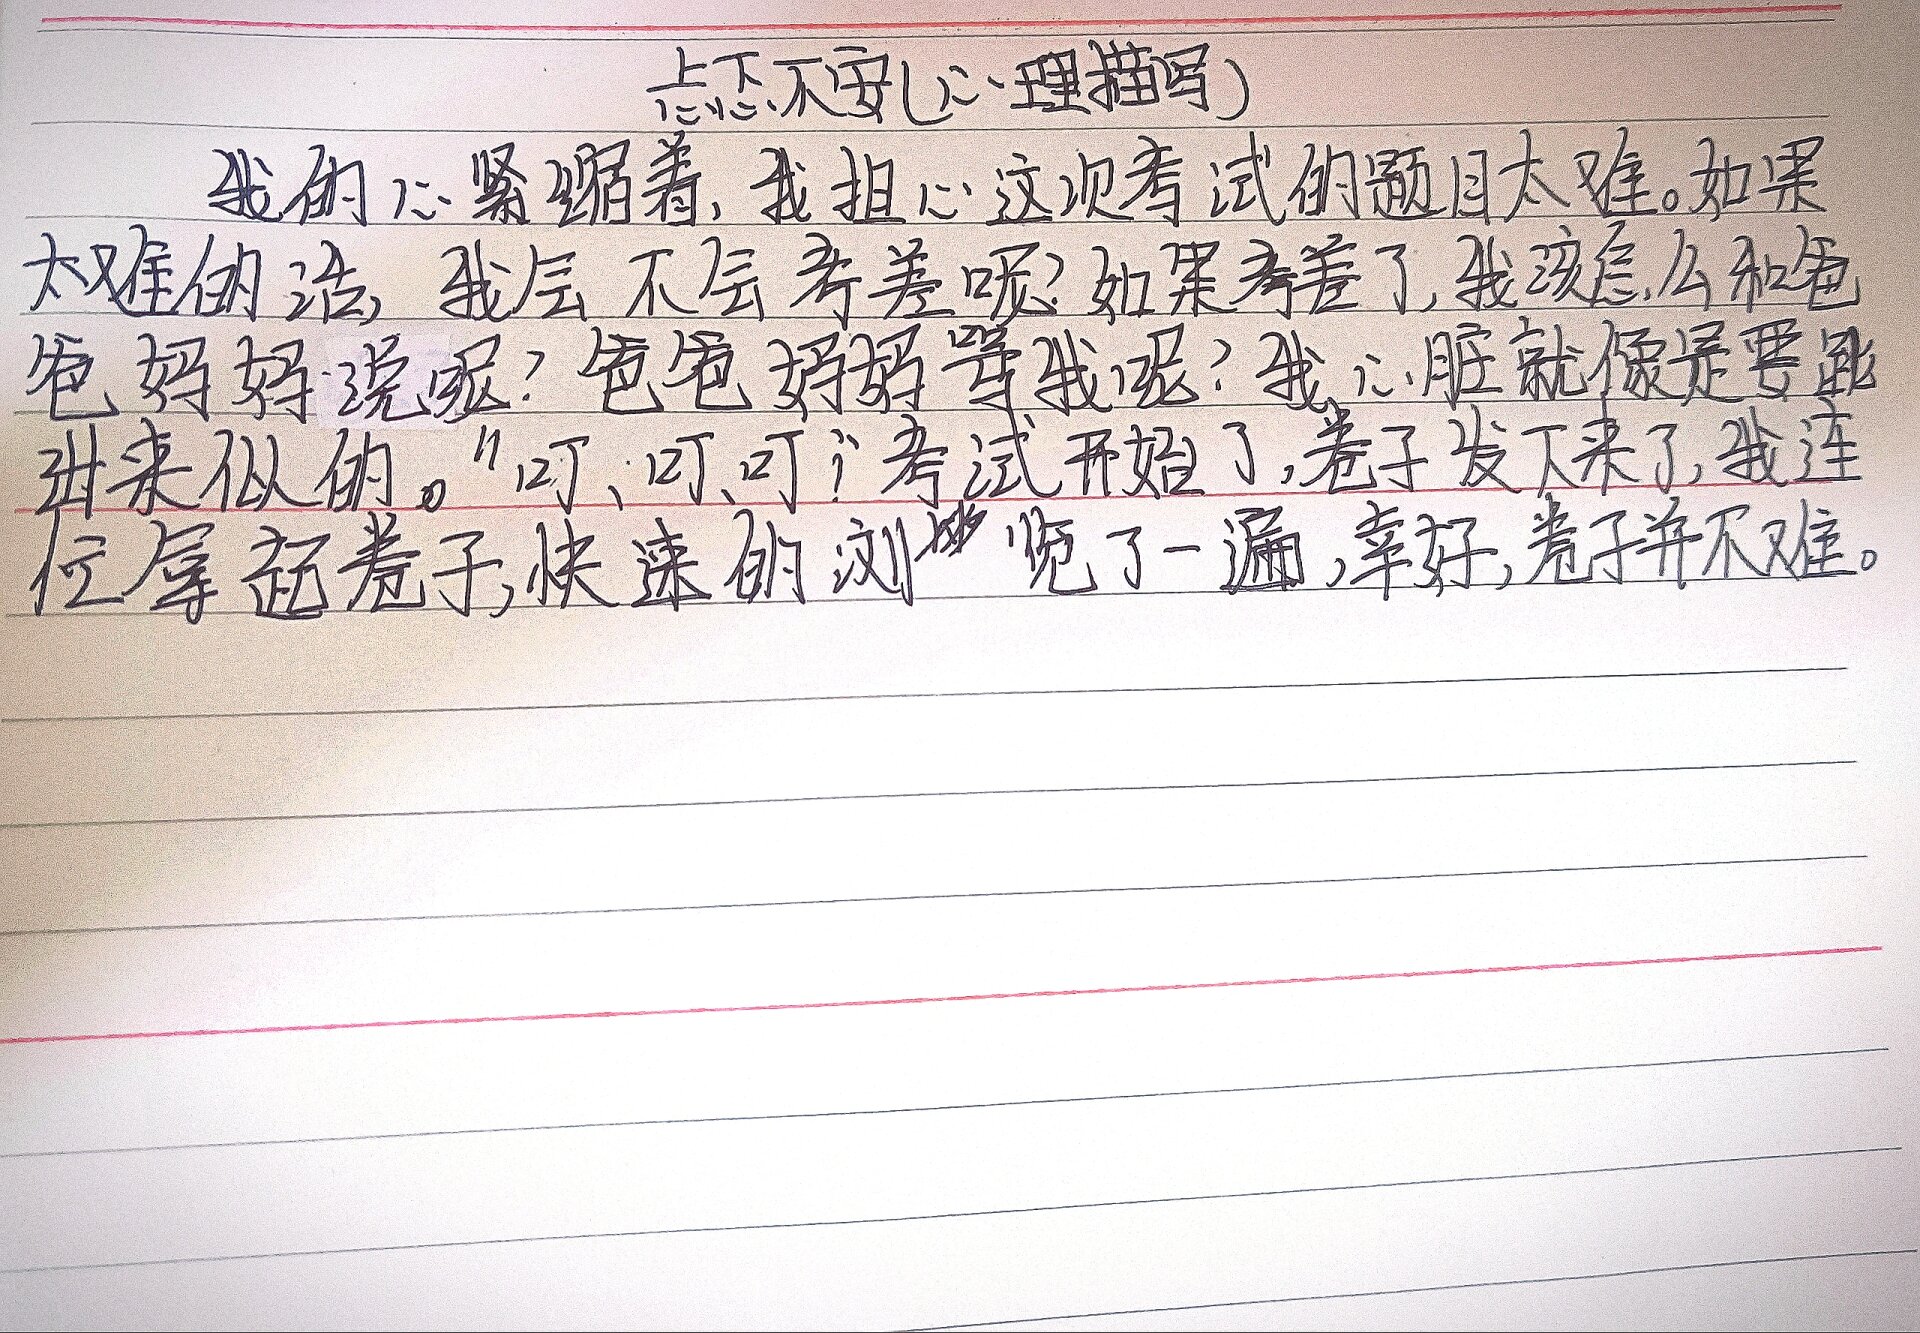 忐忑不安(心理描写)
我的心紧缩着,我担心这次考试的题目太难。如果
太难的话,我会不会考差呢?如果考差了,我该怎么和爸
爸妈妈说呢?爸爸妈妈等我呢?我心脏就像是要跳
出来似的。“叮、叮、叮”考试开始了,卷子发下来了,我连
位拿起卷子,快速的浏览了一遍,幸好,卷子并不难。